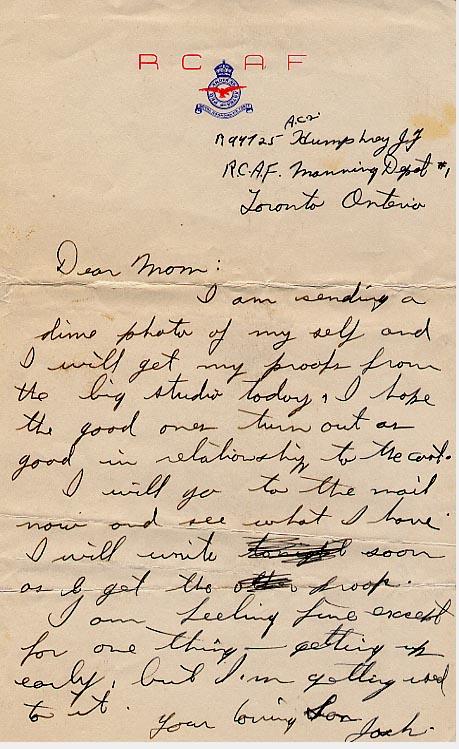 RCAF
A.C.2.
R94725 Humphrey J.J
R.C.A.F. Manning Depot #1
Toronto Ontario
Dear Mom:
I am sending a
dime photo of my self and
I will get my proofs from
the big studio today, I hope
the good ones turn out as
good in relationship to the cost.
I will go to the mail
now and see what I have.
I will write soon
as I get the proof.
I am feeling fine except
for one thing — getting up
early, but I'm getting used
to it.
Your loving Son
Jack.